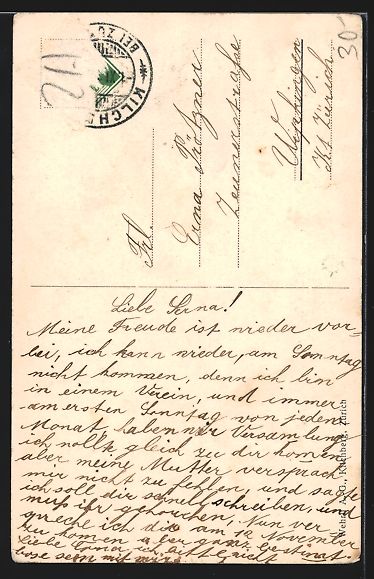 KILCHB
BEI ZÜ
30-
Frl.
Erna Pfitzner
Zeunerstraße
Wipkingen
Kt. Zürich
Liebe Erna!
Meine Freude ist wieder vor-
bei, ich kann wieder, am Sonntag
nicht kommen, denn ich bin
in einem Verein, und immer
am ersten Sonntag von jedem
Monat, haben wir Versamlung
ich wollte gleich zu dir komen
aber meine Mutter versprach
mir nicht zu fehlen, und sagte
ich soll dir schreiben, und
muß ihr gehorchen, Nun ver-
spreche ich dir am 12 November
zu komen aber ganz bestimt.
Liebe Erna sei bitte nicht
böse sein mit mir.
Wehrli A.-G., Kilchberg, Zürich